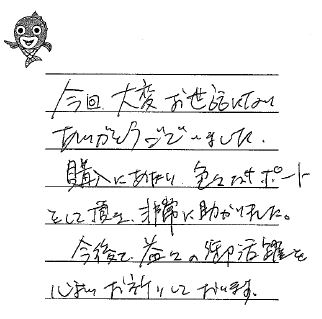 今回 大変 お世話になり
ありがとうございました。
購入にあたり、色々なサポート
をして頂き、非常に助かりました。
今後も 益々の御活躍を
心より お祈りして おります。